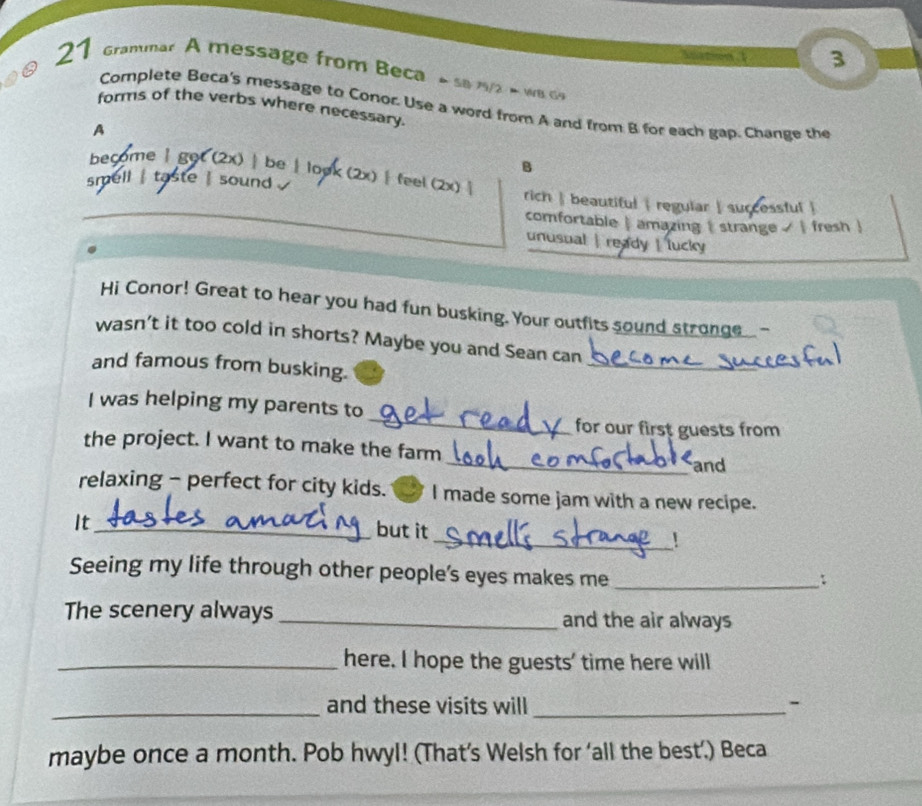 3
21 Grammar A message from Beca ► SB 75/2 ► WB G9
Complete Beca's message to Conor. Use a word from A and from B for each gap. Change the
forms of the verbs where necessary.
A
become | get (2x) | be | look (2x) | feel (2x) |
smell | taste | sound ✓
B
rich | beautiful | regular | successful |
comfortable | amazing | strange ✓ | fresh |
unusual | ready | lucky
Hi Conor! Great to hear you had fun busking. Your outfits sound strange –
wasn't it too cold in shorts? Maybe you and Sean can become succesful
and famous from busking.
I was helping my parents to get ready for our first guests from
the project. I want to make the farm look comfortable and
relaxing – perfect for city kids. I made some jam with a new recipe.
It tastes amazing but it smells strange !
Seeing my life through other people's eyes makes me ________ :
The scenery always ________ and the air always
________ here. I hope the guests' time here will
________ and these visits will ________ –
maybe once a month. Pob hwyl! (That's Welsh for 'all the best'.) Beca